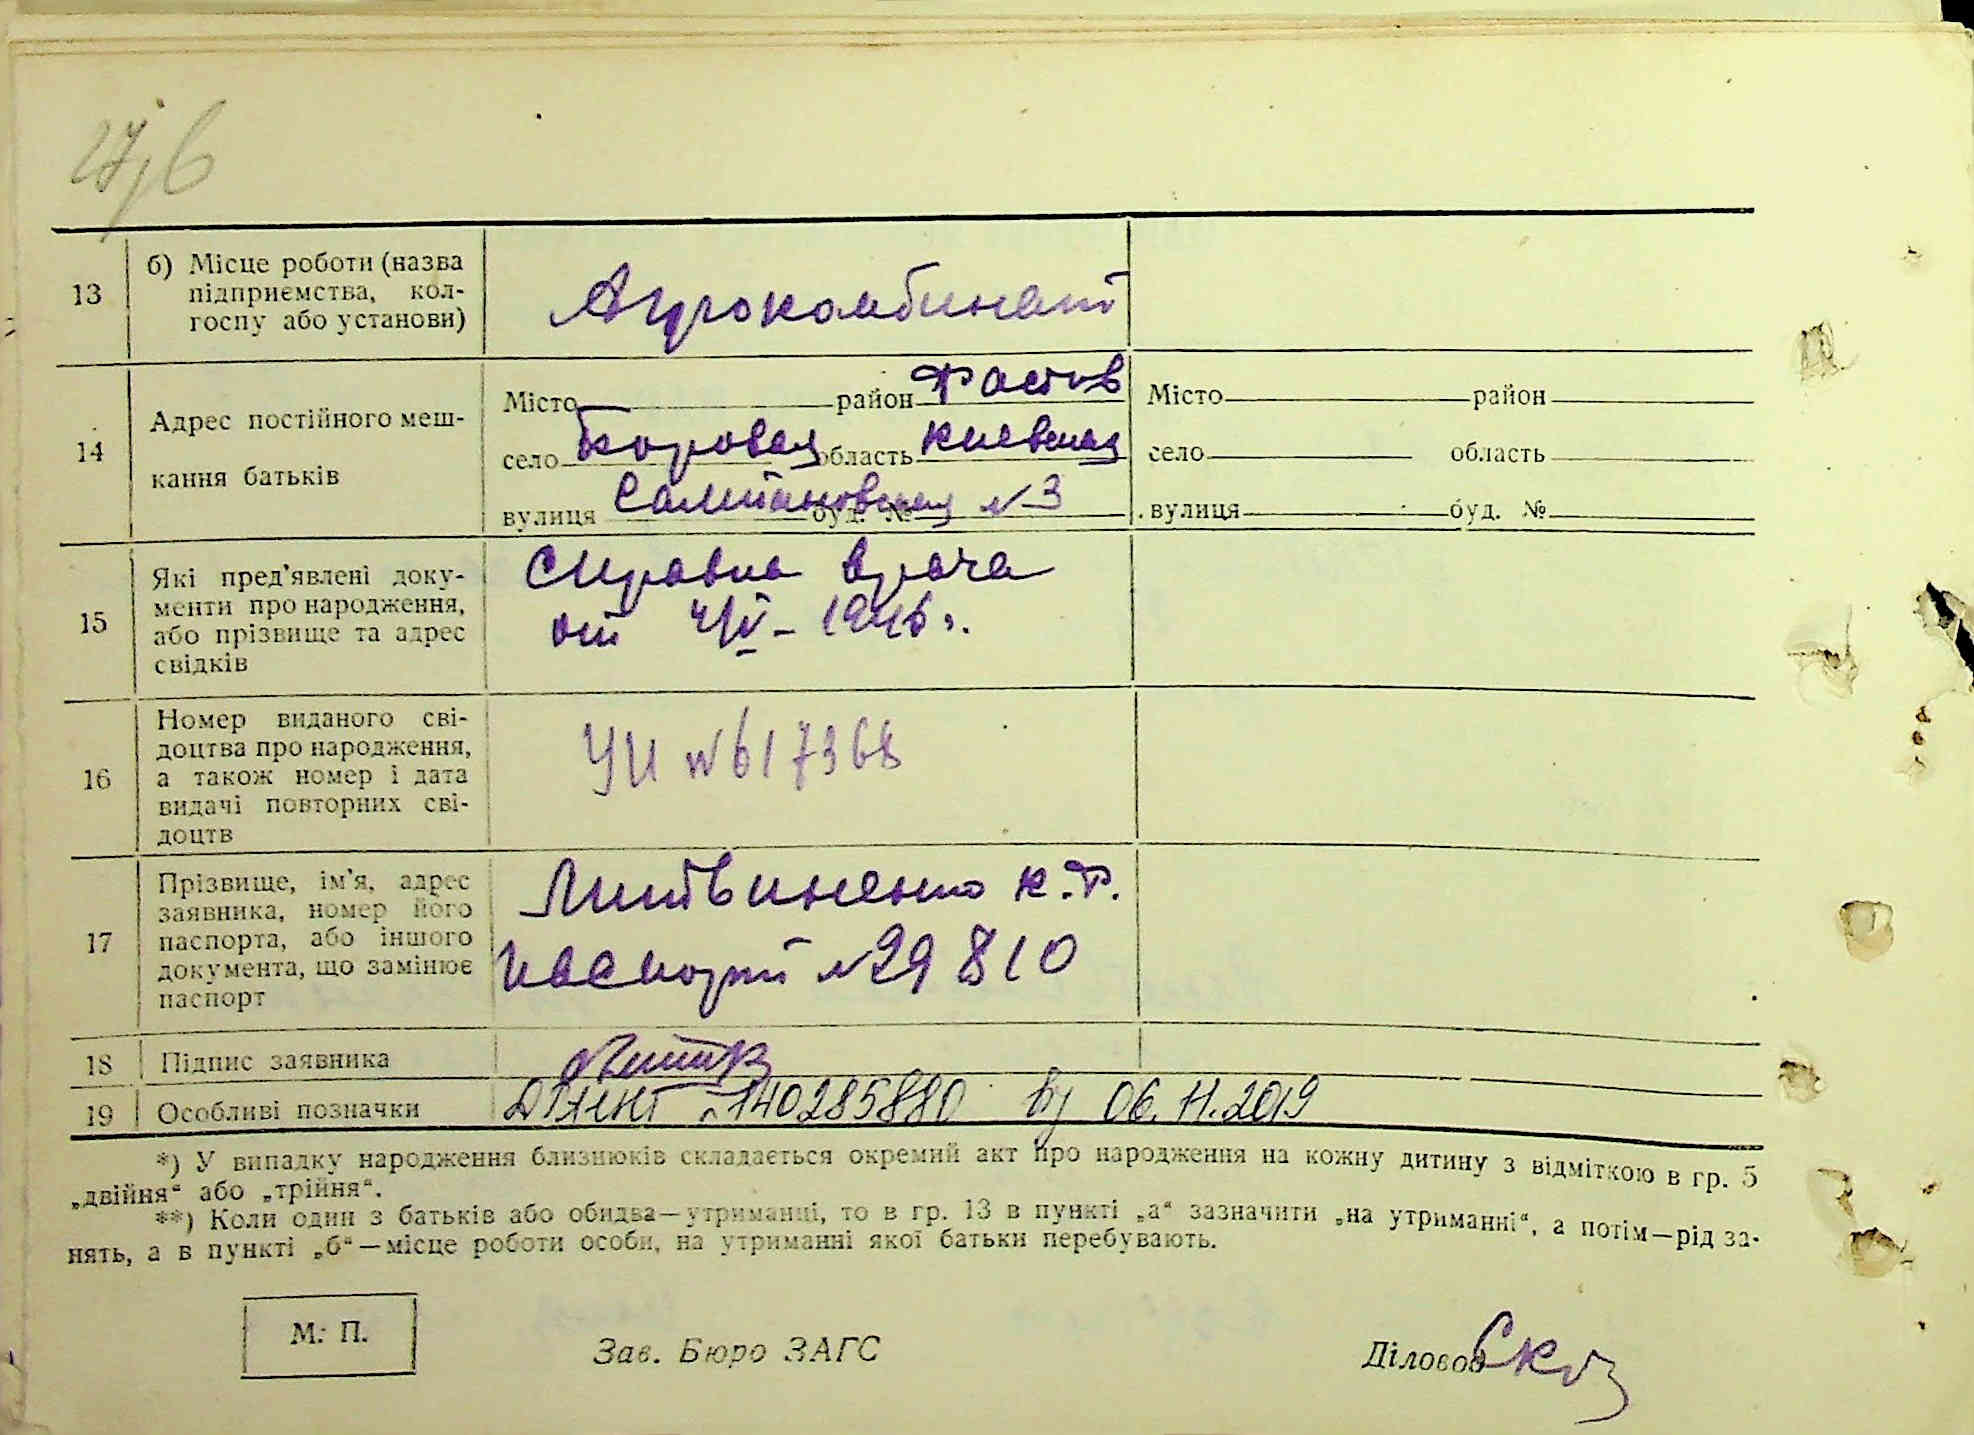 13
б) Місце роботи (назва
підприємства, кол-
госпу або установи)
Агрокомбинат
14
Адрес постійного меш-
кання батьків
Місто район Фастов
село Боровая область Киевская
вулиця буд. № №3
Місто район
село область
вулиця буд. №
15
Які пред'явлені доку-
менти про народження,
або прізвище та адрес
свідків
Справка врача
от 1946 г.
16
Номер виданого сві-
доцтва про народження,
а також номер і дата
видачі повторних сві-
доцтв
УИ №617368
17
Прізвище, ім'я, адрес
заявника, номер його
паспорта, або іншого
документа, що замінює
паспорт
Литвиненко К.Ф.
Паспорт №29810
18
Підпис заявника
19
Особливі позначки
140285880 від 06.11.2019
*) У випадку народження близнюків складається окремий акт про народження на кожну дитину з відміткою в гр. 5
„двійня“ або „трійня“.
**) Коли один з батьків або обидва—утриманці, то в гр. 13 в пункті „а“ зазначити „на утриманні“, а потім—рід за-
нять, а в пункті „б“—місце роботи особи, на утриманні якої батьки перебувають.
М. П.
Зав. Бюро ЗАГС
Діловод